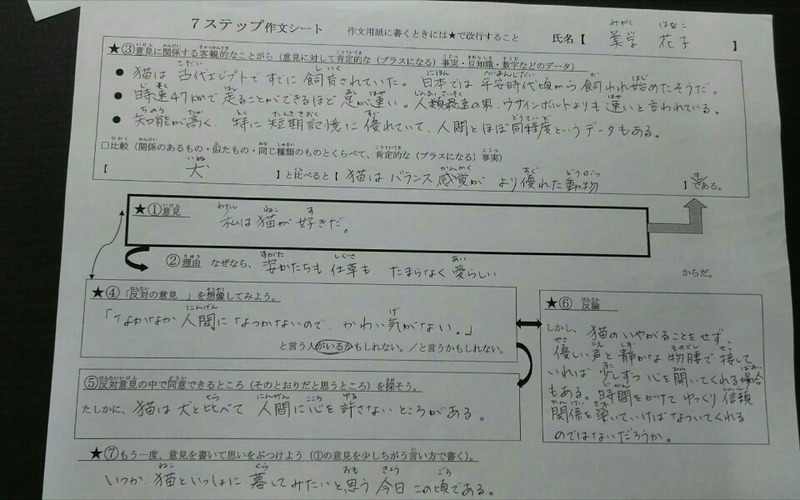 7ステップ作文シート 作文用紙に書くときには★で改行すること 氏名【 美学 花子 】
★③意見に関係する客観的なことがら(意見に対して肯定的な(プラスになる)事実・豆知識・数字などのデータ)
● 猫は古代エジプトですでに飼育されていた。日本では平安時代頃から飼われ始めたそうだ。
● 時速47kmで走ることができるほど足が速い。人類最速の男、ウサインボルトよりも速いと言われている。
● 知能が高く、特に短期記憶に優れていて、人間とほぼ同程度というデータもある。
□比較(関係のあるもの・似たもの・同じ種類のものとくらべて、肯定的な(プラスになる)事実)
【 犬 】と比べると【 猫はバランス感覚がより優れた動物 】である。
★①意見
私は猫が好きだ。
②理由 なぜなら、姿かたちも仕草もたまらなく愛らしい からだ。
★④「反対の意見」を想像してみよう。
「なかなか人間になつかないので、かわい気がない。」
と言う人がいるかもしれない。/と言うかもしれない。
⑤反対意見の中で同意できるところ(そのとおりだと思うところ)を探そう。
たしかに、猫は犬と比べて人間に心を許さないところがある。
★⑥ 反論
しかし、猫のいやがることをせず、
優しい声と静かな物腰で接して
いれば少しずつ心を開いてくれる場合
もある。時間をかけてゆっくり信頼
関係を築いていけばなついてくれる
のではないだろうか。
★⑦もう一度、意見を書いて思いをぶつけよう(①の意見を少しちがう言い方で書く)。
いつか猫といっしょに暮してみたいと思う今日この頃である。